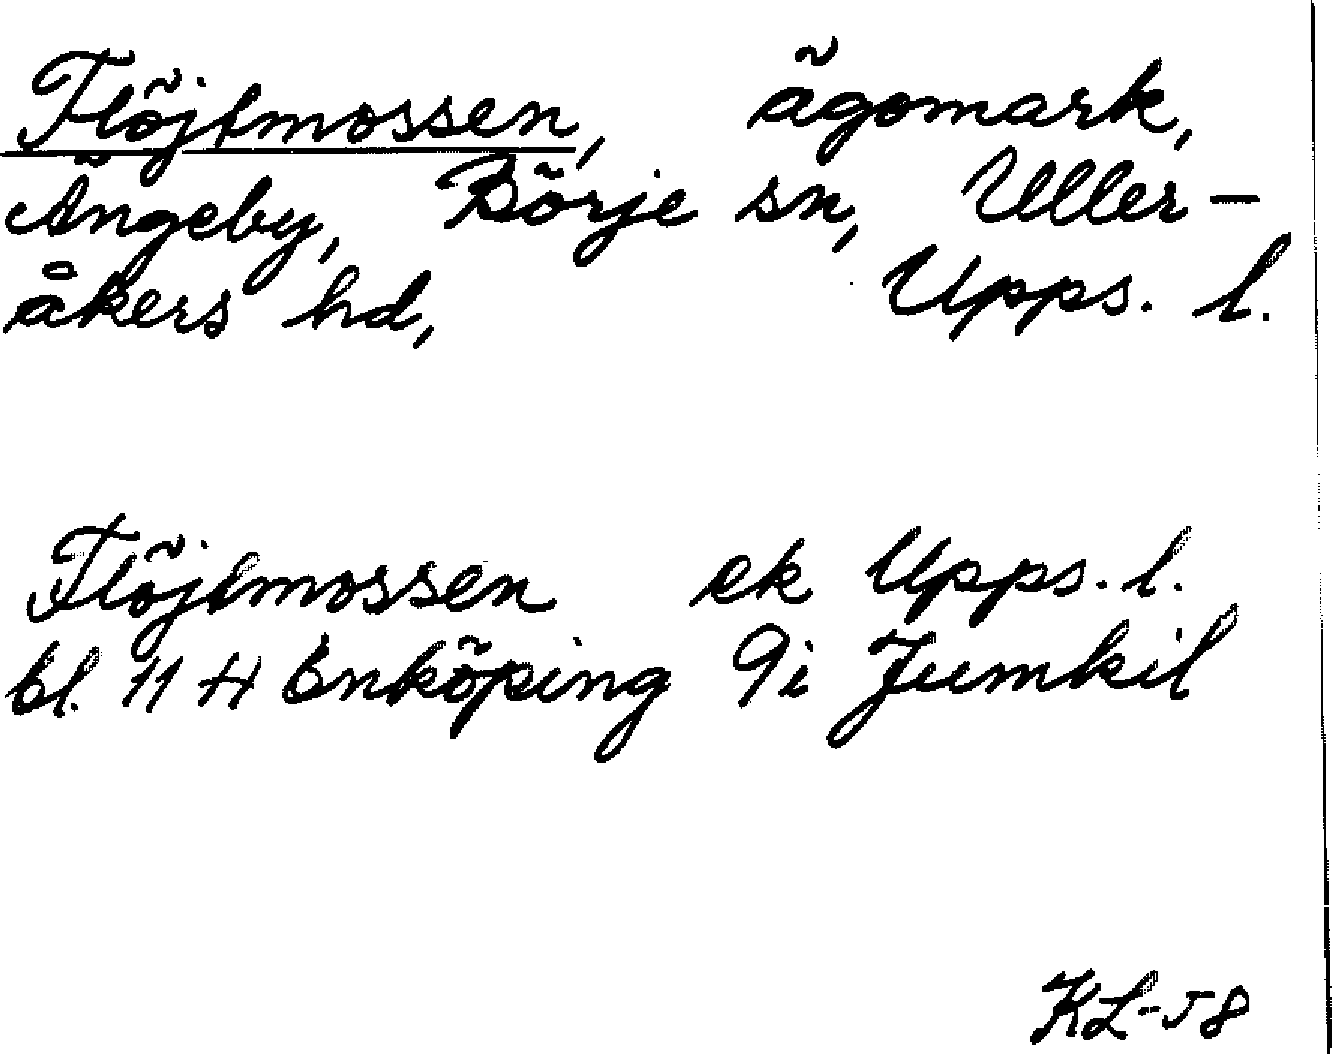 Flöjtmossen, ägomark,
Ängeby, Börje sn, Uller-
åkers hd, Upps. l.
Flöjtmossen ek Upps. l.
bl. 11 H Enköping 9i Jumkil
KL-58